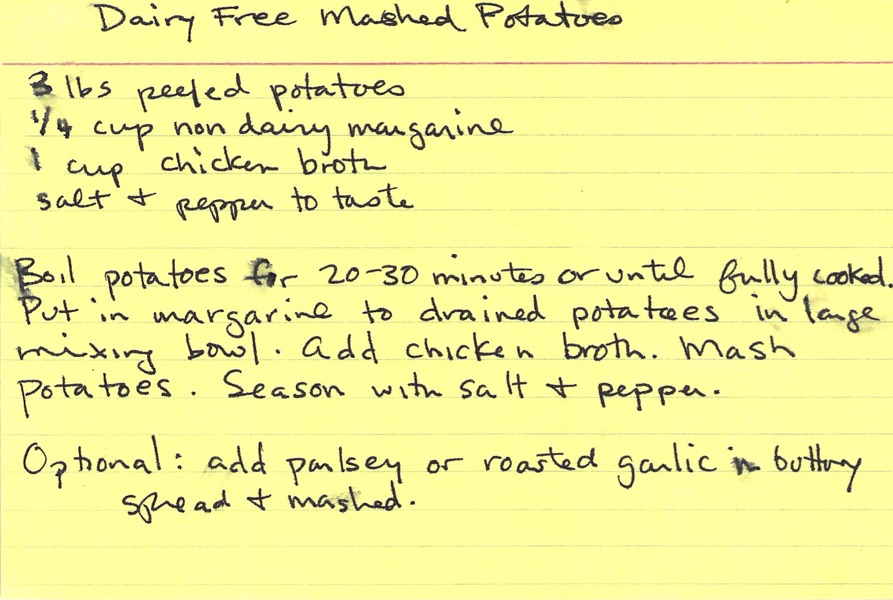 Dairy Free Mashed Potatoes
3 lbs peeled potatoes
1/4 cup non dairy margarine
1 cup chicken broth
salt + pepper to taste
Boil potatoes for 20-30 minutes or until fully cooked.
Put in margarine to drained potatoes in large
mixing bowl. Add chicken broth. Mash
potatoes. Season with salt + pepper.
Optional: add parlsey or roasted garlic in buttery
spread + mashed.